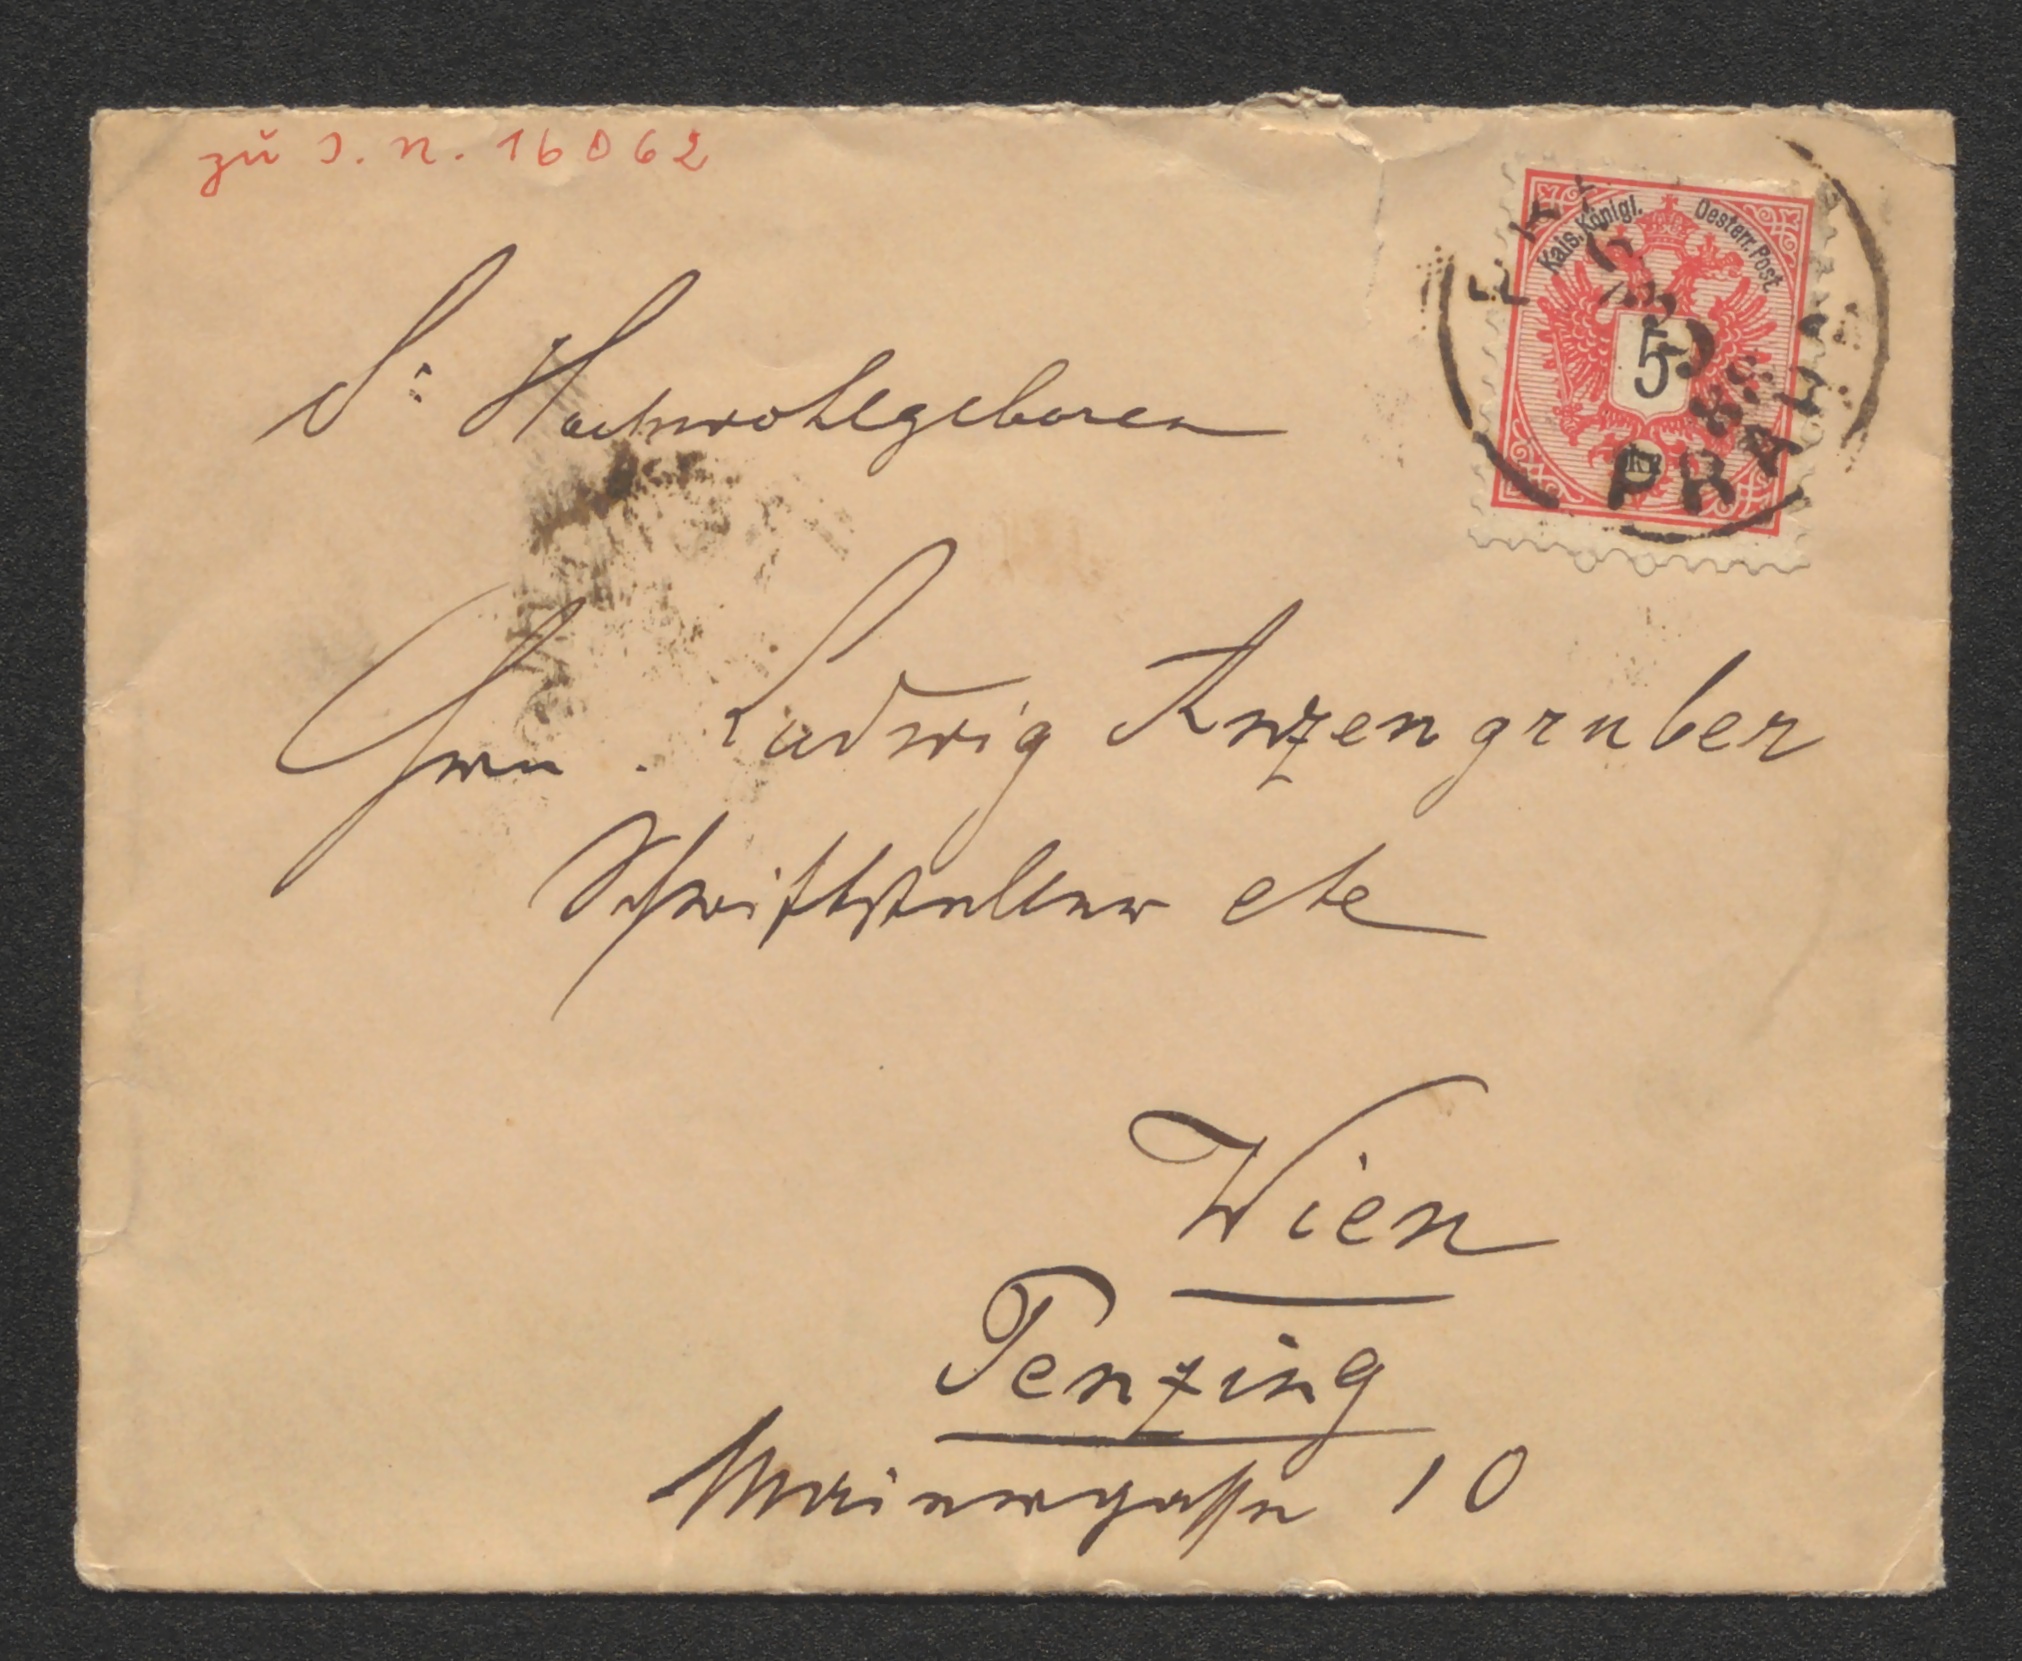 zu I. N. 16062
Kais. Königl. Oesterr. Post
5
Kr
PRAHA
88
Sr Hochwohlgeboren
Hrrn. Ludwig Anzengruber
Schriftsteller etc
Wien
Penzing
10